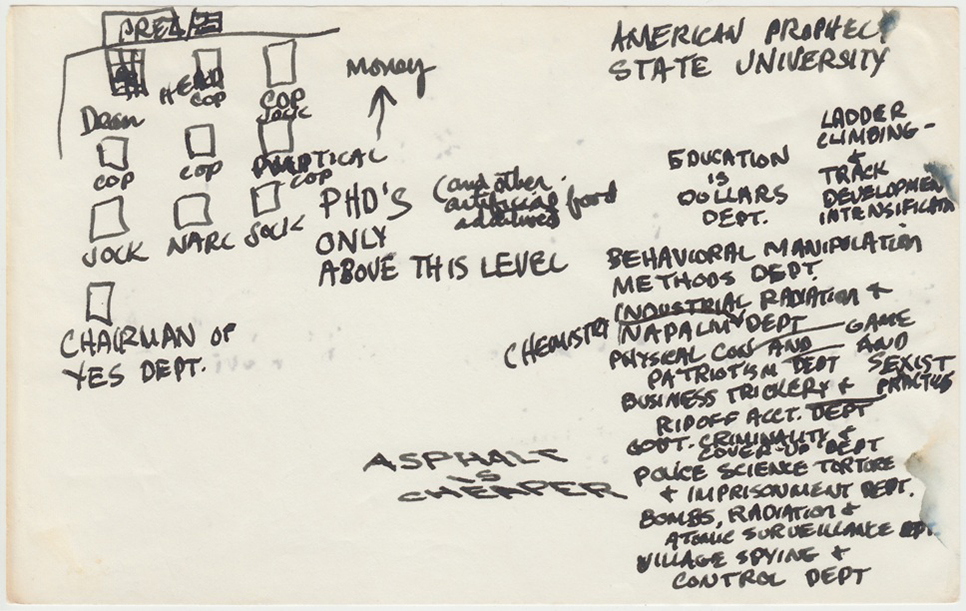 PREZ
HEAD
COP
COP
JOCK
Dean
COP
COP
COP
JOCK
NARC
JOCK
CHAIRMAN OF
YES DEPT.
Money
PHD'S
ONLY
ABOVE THIS LEVEL
(and other
artificial food
additives)
ASPHALT
IS
CHEAPER
AMERICAN PROPHECY
STATE UNIVERSITY
EDUCATION
IS
DOLLARS
DEPT.
LADDER
CLIMBING -
&
TRACK
DEVELOPMENT
INTENSIFICATION
BEHAVIORAL MANIPULATION
METHODS DEPT.
INDUSTRIAL RADIATION &
CHEMISTRY NAPALM DEPT
PHYSICAL CON AND GAME AND
PATRIOTISM DEPT SEXIST
BUSINESS TRICKERY & PRACTICES
RIPOFF ACCT. DEPT
GOVT. CRIMINALITY &
COVER-UP DEPT
POLICE SCIENCE TORTURE
& IMPRISONMENT DEPT.
BOMBS, RADIATION &
ATOMIC SURVEILLANCE DEPT.
VILLAGE SPYING &
CONTROL DEPT